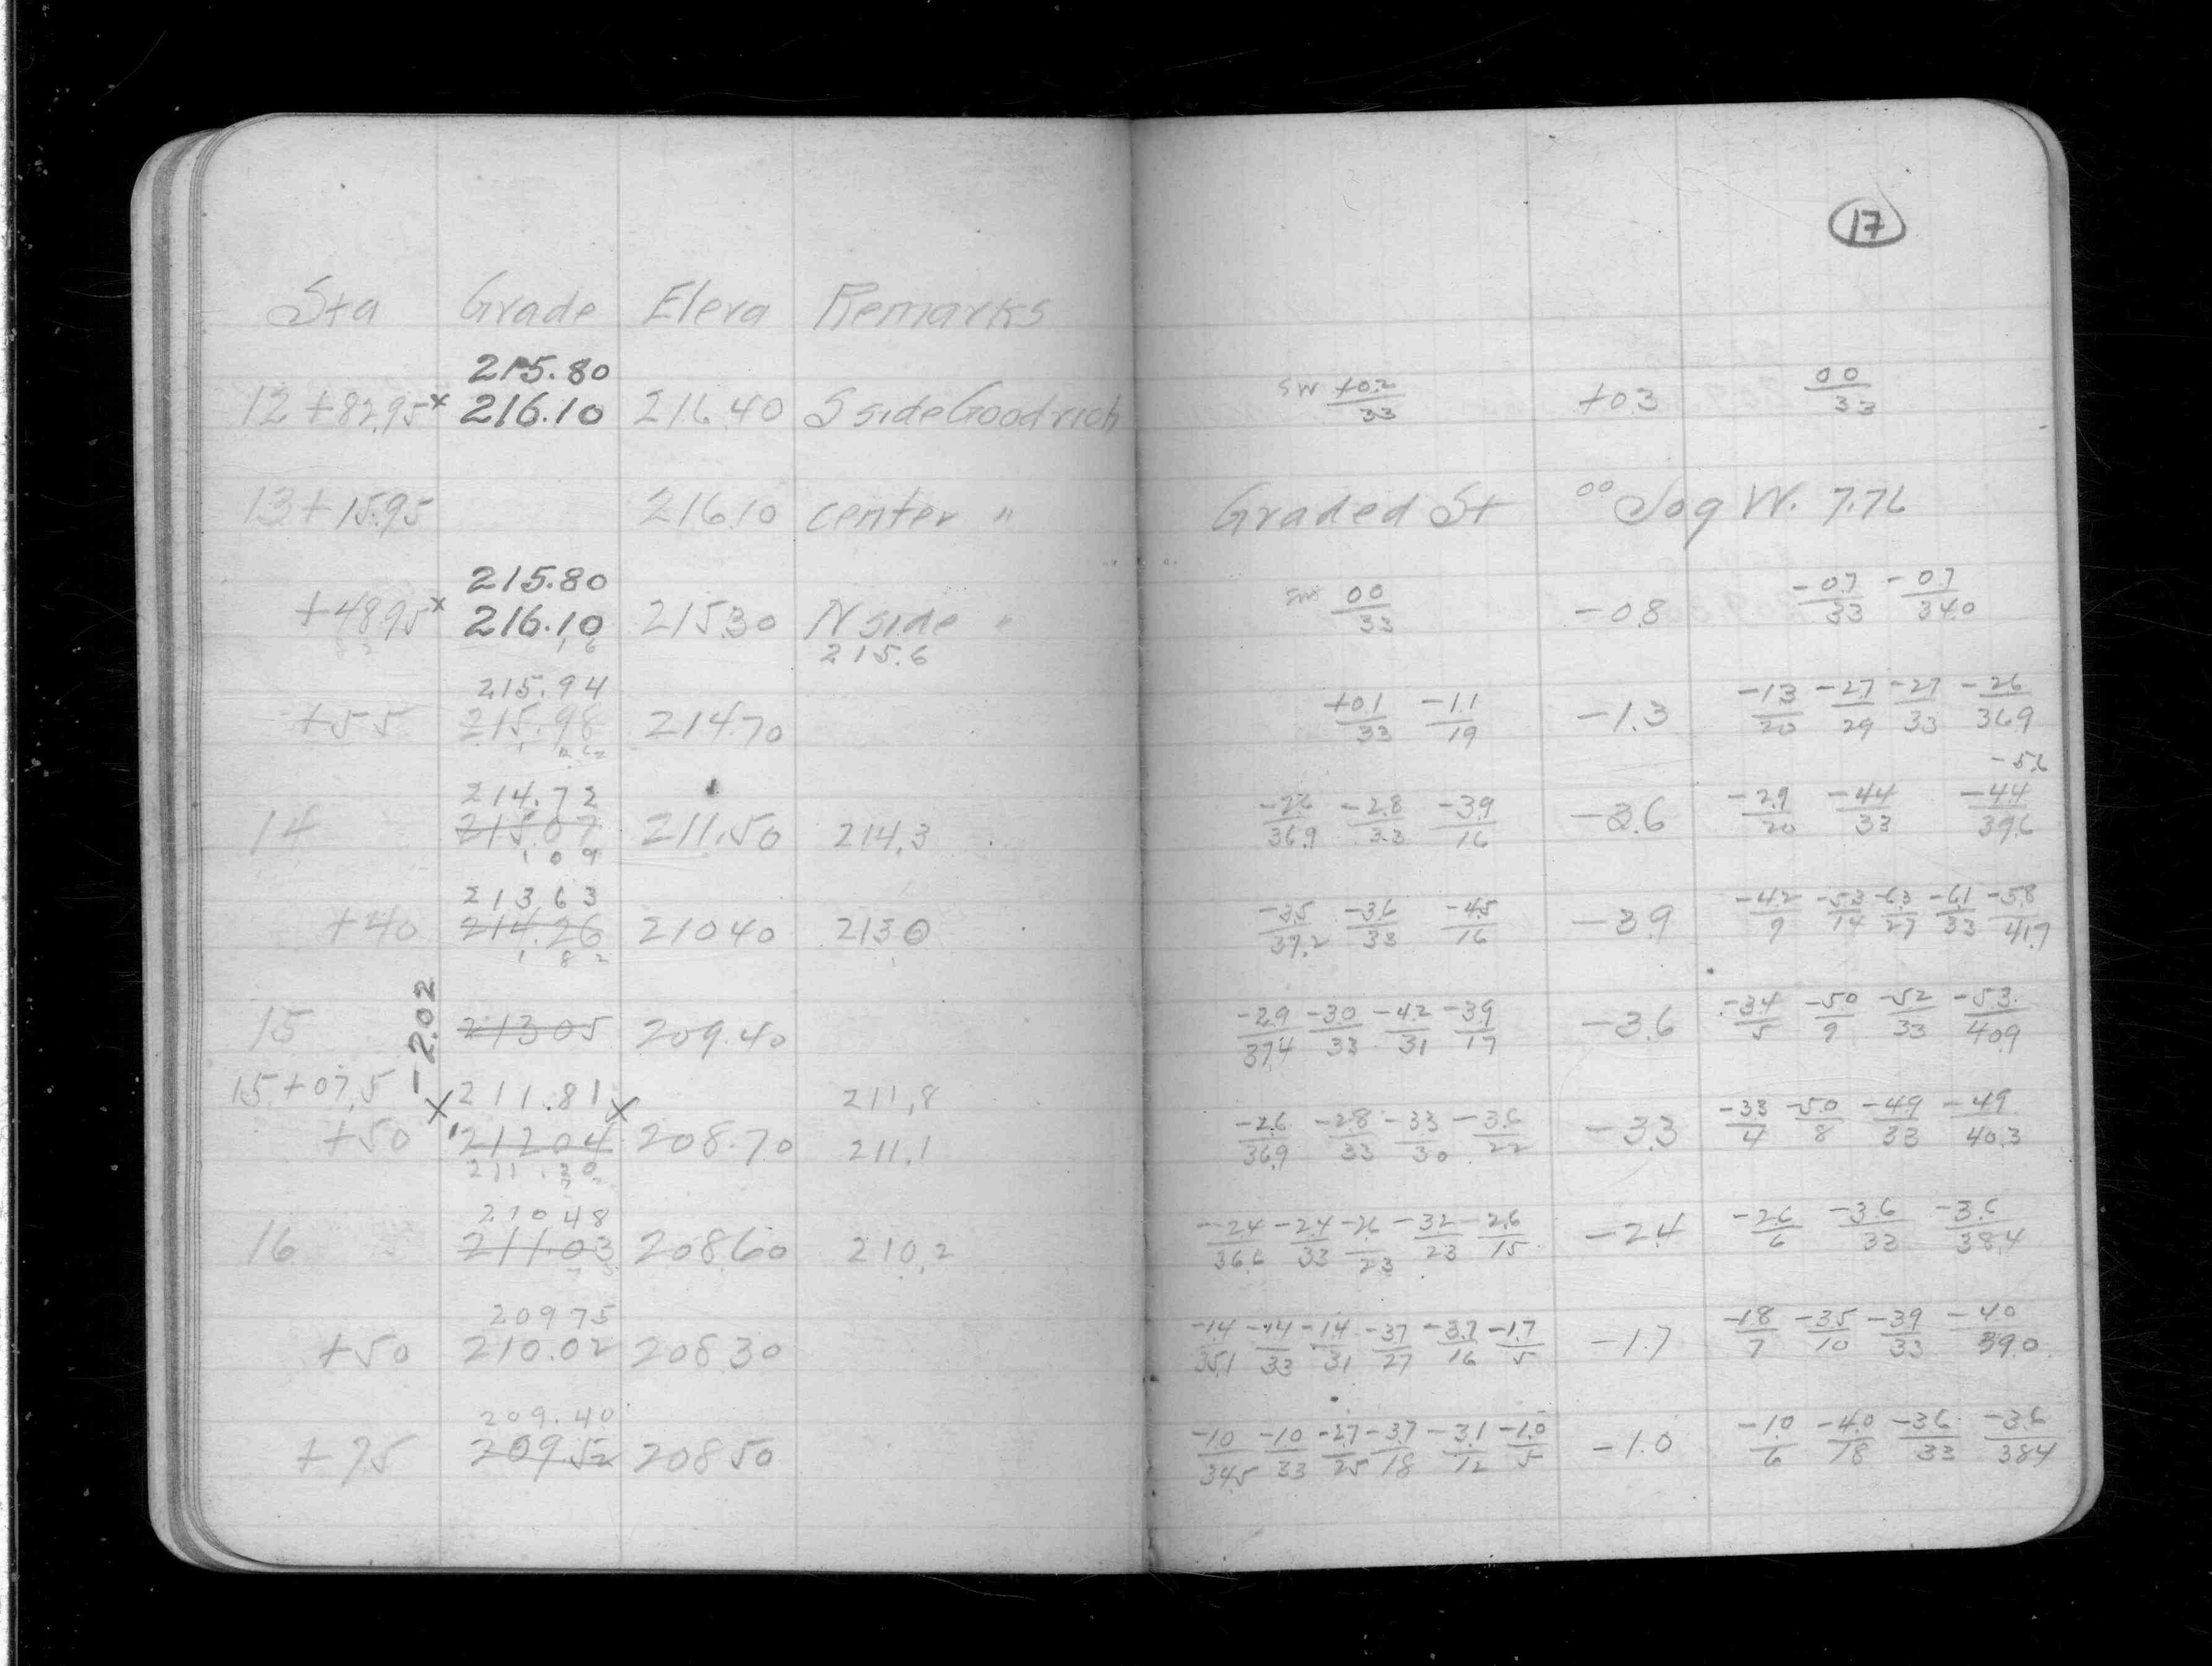 17
Sta Grade Eleva Remarks
215.80
12+82.95x 216.10 216.40 S side Goodrich SW +0.2/33 +0.3 00/33
13+15.95 216.10 center " Graded St 00 Jog W. 7.76
215.80
+48.95x 216.10 215.30 N side " SW 00/33 -0.8 -0.7/33 -0.7/34.0
215.6
215.94
+55 215.98 214.70 +0.1/33 -1.1/19 -1.3 -1.3/20 -2.7/29 -2.7/33 -2.6/36.9
-5.6
214.72
14 215.07 211.50 214.3 -2.6/36.9 -2.8/33 -3.9/16 -3.6 -2.9/20 -4.4/33 -4.4/39.6
1 0 9
213.63
+40 214.26 210.40 213.0 -3.5/37.2 -3.6/33 -4.5/16 -3.9 -4.2/9 -5.3/14 -6.3/27 -6.1/33 -5.8/41.7
1 8 2
-2.02
15 213.05 209.40 -2.9/37.4 -3.0/33 -4.2/31 -3.9/17 -3.6 -3.4/5 -5.0/9 -5.2/33 -5.3/40.9
15+07.5 x 211.81 x 211.8
+50 212.04 208.70 211.1 -2.6/36.9 -2.8/33 -3.3/30 -3.6/22 -3.3 -3.3/4 -5.0/8 -4.9/33 -4.9/40.3
210.48
16 211.03 208.60 210.2 -2.4/36.6 -2.4/33 -2.6/23 -3.2/23 -2.6/15 -2.4 -2.6/6 -3.6/33 -3.6/38.4
209.75
+50 210.02 208.30 -1.4/35.1 -1.4/33 -1.4/31 -3.7/27 -3.7/16 -1.7/5 -1.7 -1.8/7 -3.5/10 -3.9/33 -4.0/39.0
209.40
+75 209.52 208.50 -1.0/34.5 -1.0/33 -2.7/25 -3.7/18 -3.1/12 -1.0/5 -1.0 -1.0/6 -4.0/18 -3.6/33 -3.6/38.4